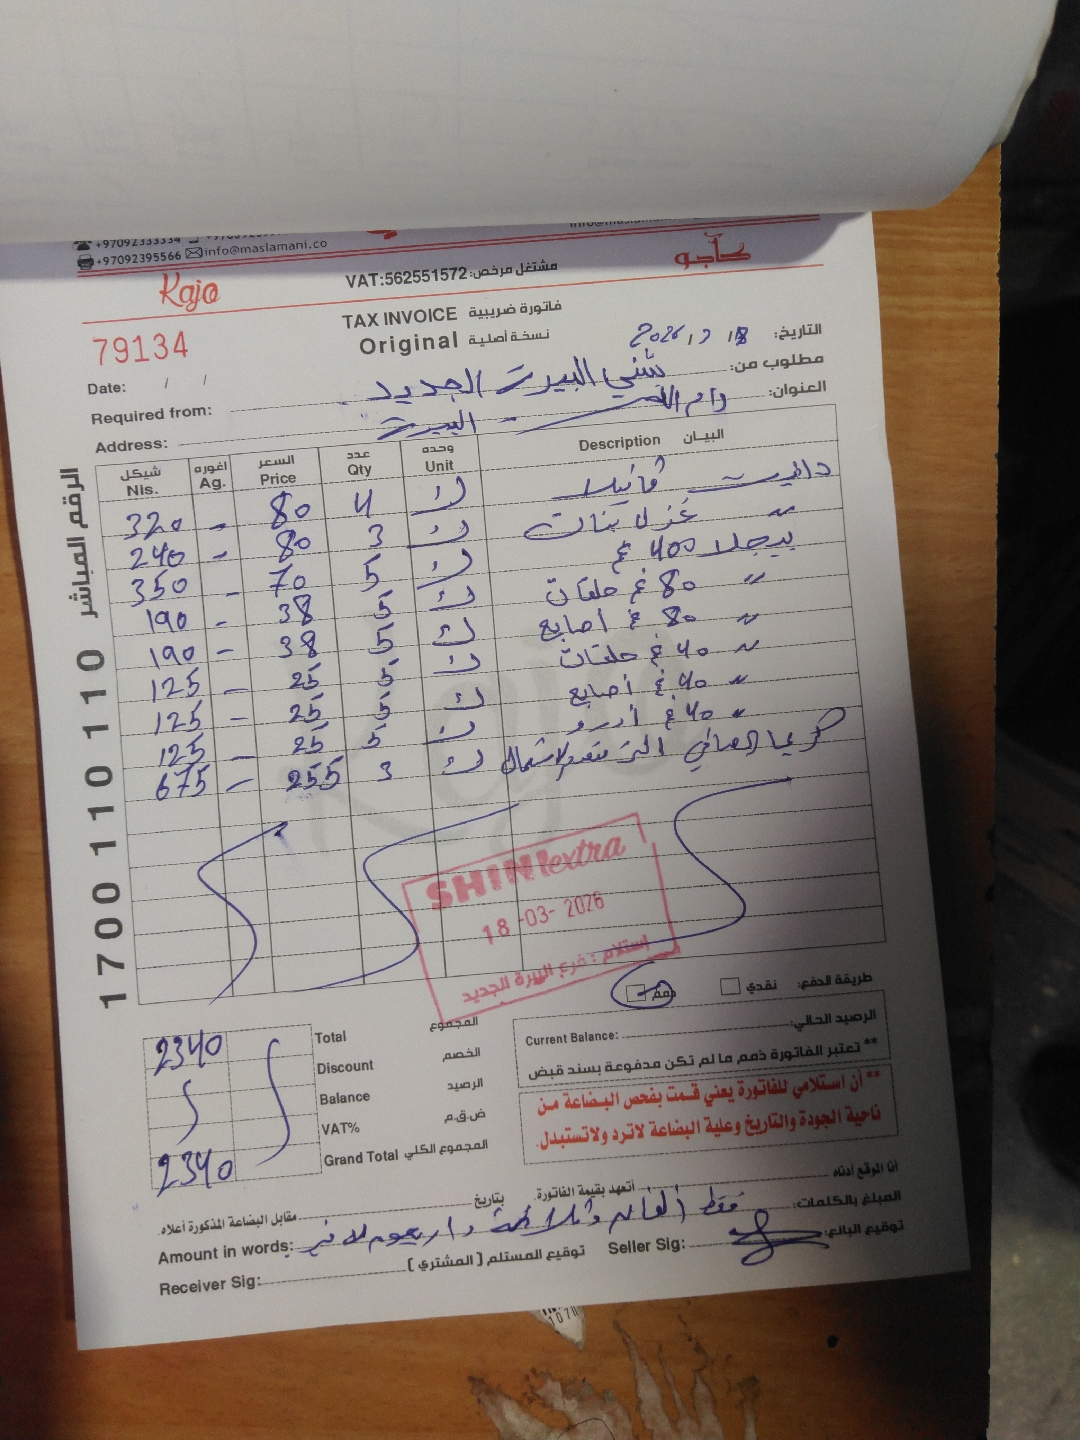 +97092333334
+97092395566 info@maslamani.co
Kajo
كاجو
مشتغل مرخص: VAT:562551572
79134
TAX INVOICE فاتورة ضريبية
Original نسخة أصلية
Date: / / 2026, 3 18 التاريخ:
Required from: شني البيرة الجديد مطلوب من:
Address: رام الله - البيرة العنوان:
شيكل اغوره السعر عدد وحده البيـان
Nis. Ag. Price Qty Unit Description
320 - 80 4 ك فانيلا
240 - 80 3 ك " غزل بنات
350 - 70 5 ك بيجلا 400 غم
190 - 38 5 ك " 80 غ حلقات
190 - 38 5 ك " 80 غ أصابع
125 - 25 5 ك " 40 غ حلقات
125 - 25 5 ك " 40 غ أصابع
125 - 25 5 ك " 40 غ
675 - 255 3 ك كريما
الرقم المباشر 1700 110 110
SHINI extra
18-03-2026
إستلام : فرع البيرة الجديد
طريقة الدفع: نقدي ذمم
2340 Total المجموع
Discount الخصم
Balance الرصيد
VAT% ض.ق.م
2340 Grand Total المجموع الكلي
Current Balance: الرصيد الحالي:
** تعتبر الفاتورة ذمم ما لم تكن مدفوعة بسند قبض
** أن استلامي للفاتورة يعني قمت بفحص البضاعة من
ناحية الجودة والتاريخ وعلية البضاعة لاترد ولاتستبدل.
أنا الموقع أدناه أتعهد بقيمة الفاتورة. بتاريخ مقابل البضاعة المذكورة أعلاه.
Amount in words: فقط ألفان وثلاثمئة واربعون لا غير المبلغ بالكلمات:
Receiver Sig: توقيع المستلم ( المشتري ) Seller Sig: توقيع البائع: